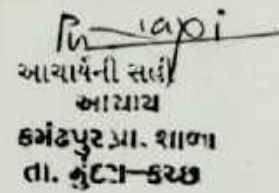 આચાર્યની સહી
આચાર્ય
કમંઢપુર પ્રા. શાળા
તા. મુંદરા-કચ્છ